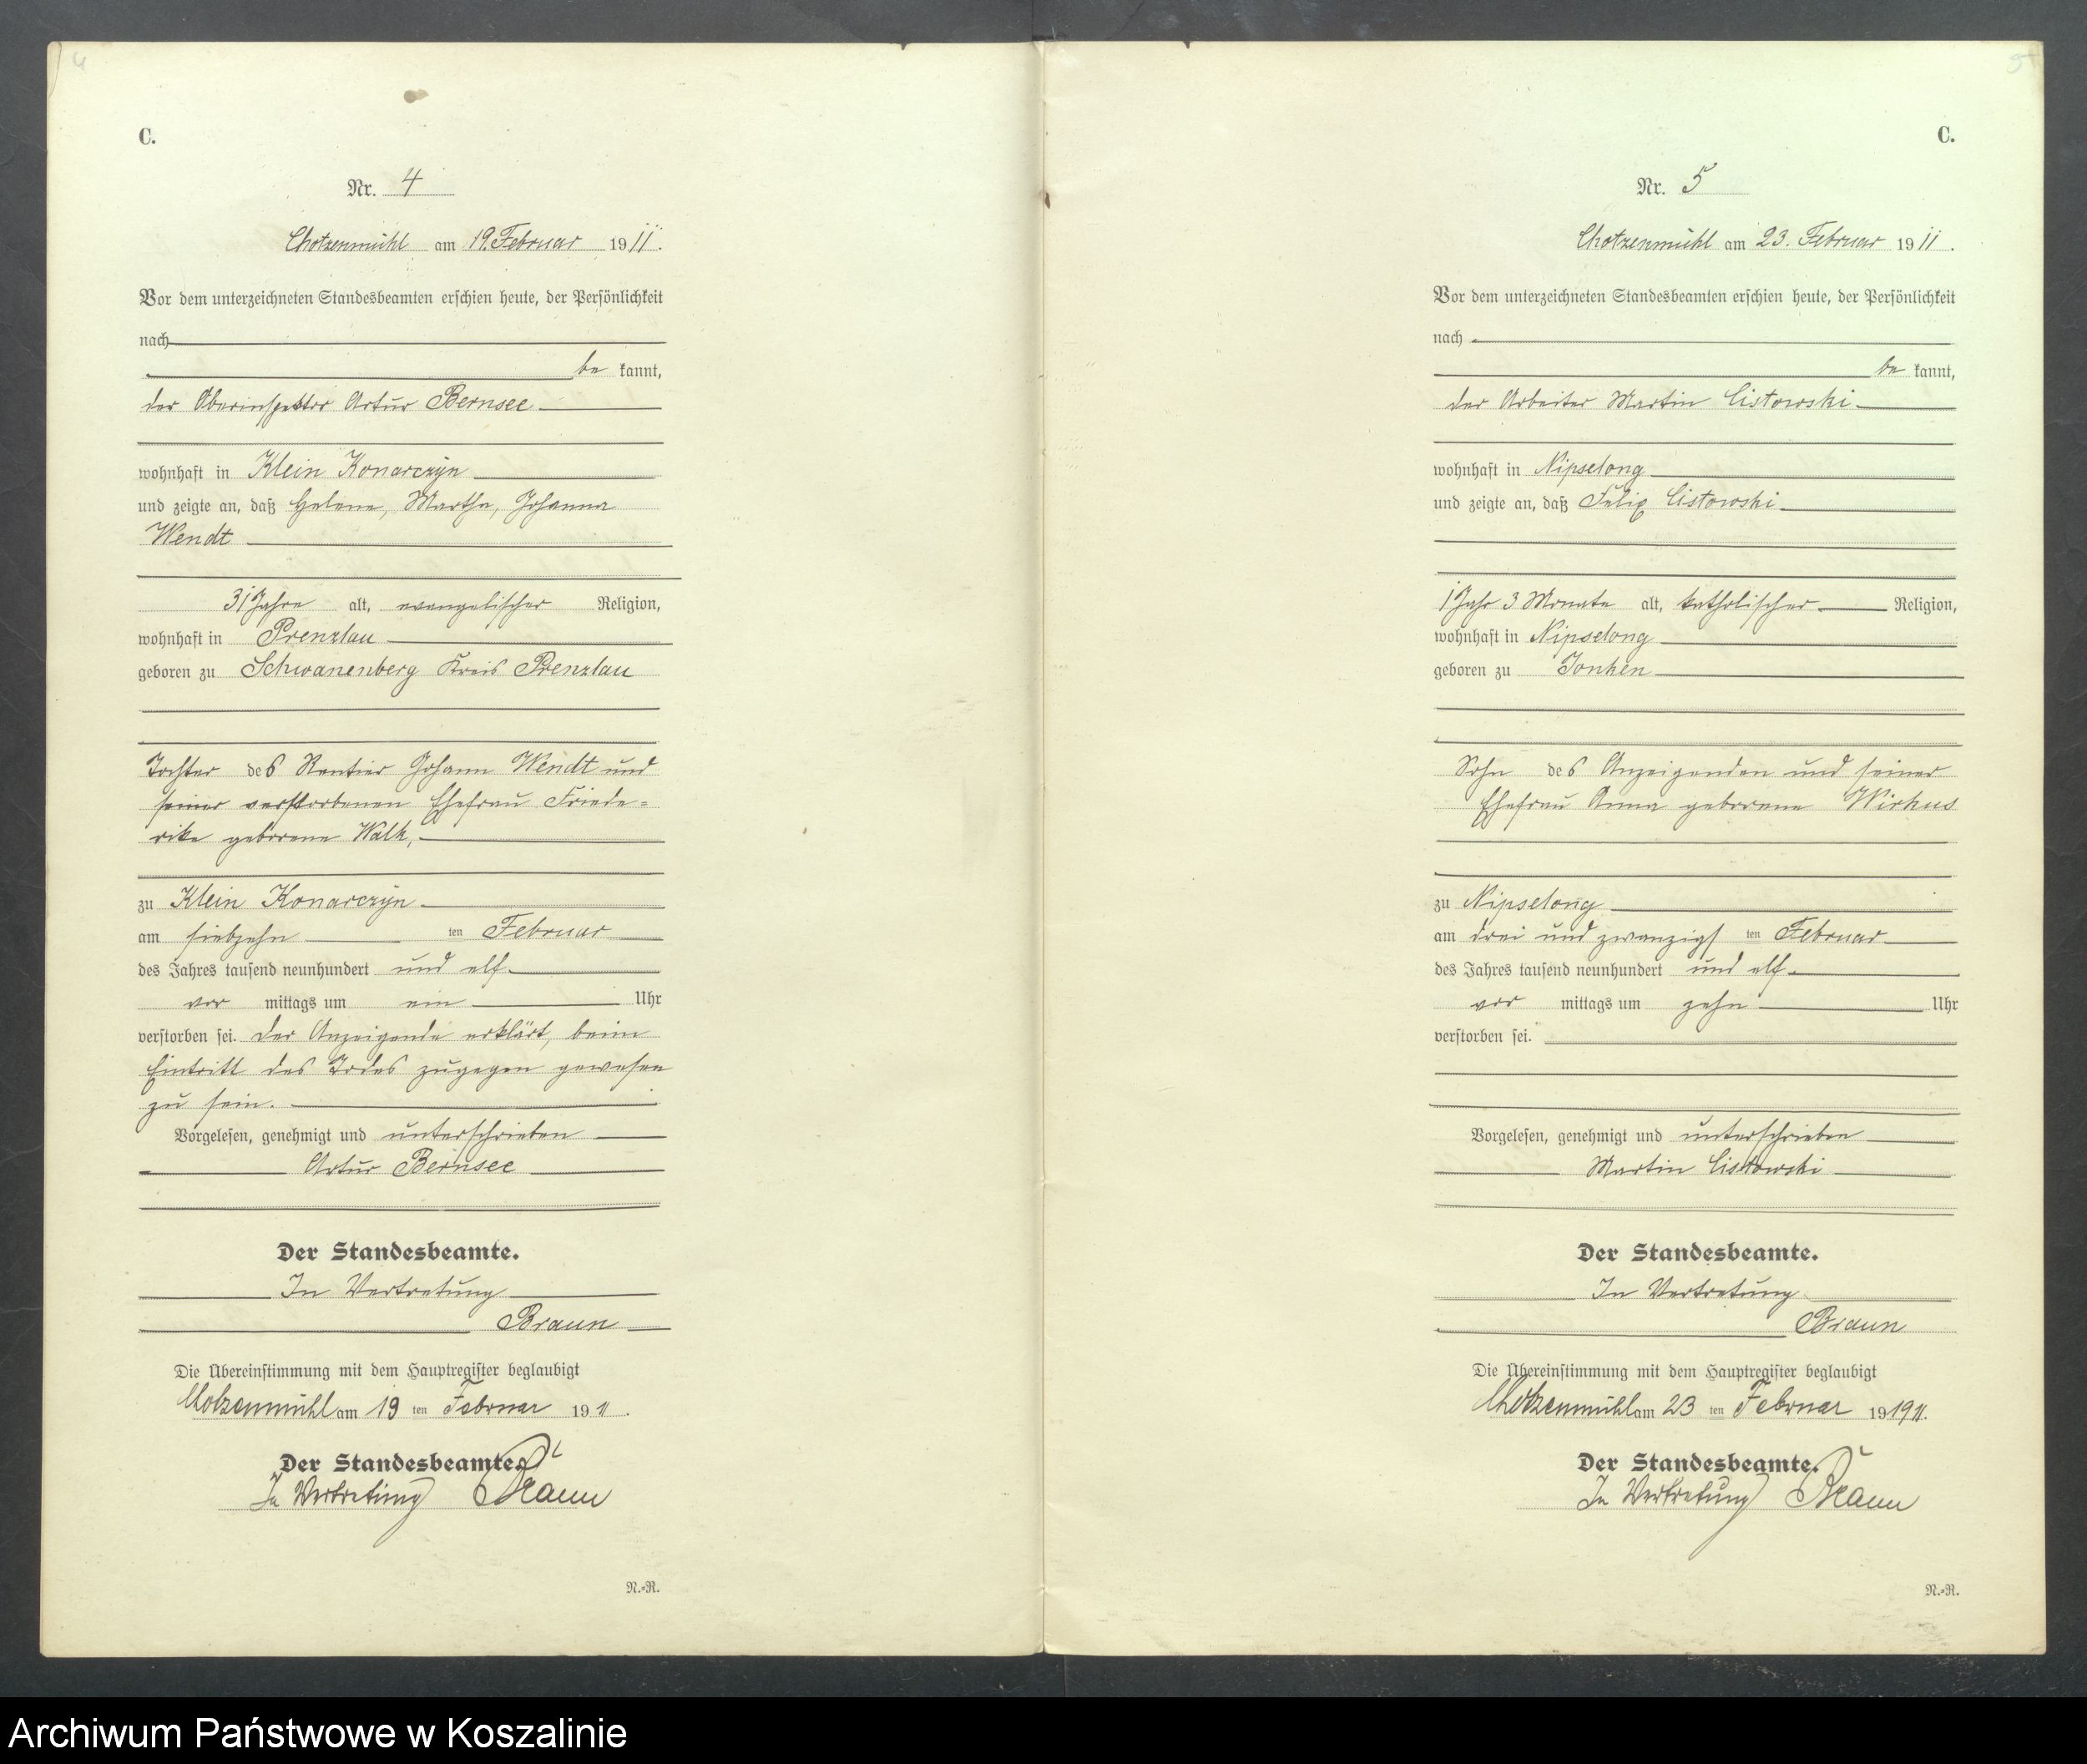 C.
Nr. 4
Chotzenmühl am 19. Februar 1911.
Vor dem unterzeichneten Standesbeamten erschien heute, der Persönlichkeit
nach
be kannt,
der Oberinspektor Artur Bernsee
wohnhaft in Klein Konarczyn
und zeigte an, daß Helene, Martha, Johanna
Wendt
31 Jahre alt, evangelischer Religion,
wohnhaft in Prenzlau
geboren zu Schwanenberg Kreis Prenzlau
Tochter des Rentier Johann Wendt und
seiner verstorbenen Ehefrau Friede-
rike geborene Walk,
zu Klein Konarczyn
am siebzehn ten Februar
des Jahres tausend neunhundert und elf
vor mittags um ein Uhr
verstorben sei. Der Anzeigende erklärt, beim
Eintritt des Todes zugegen gewesen
zu sein.
Vorgelesen, genehmigt und unterschrieben
Artur Bernsee
Der Standesbeamte.
In Vertretung
Braun
Die Übereinstimmung mit dem Hauptregister beglaubigt
Chotzenmühl am 19 ten Februar 1911.
Der Standesbeamte.
In Vertretung Braun
N.-R.
C.
Nr. 5
Chotzenmühl am 23. Februar 1911.
Vor dem unterzeichneten Standesbeamten erschien heute, der Persönlichkeit
nach
be kannt,
der Arbeiter Martin Cistowski
wohnhaft in Nipselong
und zeigte an, daß Felix Cistowski
1 Jahr 3 Monate alt, katholischer Religion,
wohnhaft in Nipselong
geboren zu Jonken
Sohn des Anzeigenden und seiner
Ehefrau Anna geborene Wirkus
zu Nipselong
am drei und zwanzigs ten Februar
des Jahres tausend neunhundert und elf
vor mittags um zehn Uhr
verstorben sei.
Vorgelesen, genehmigt und unterschrieben
Martin Cistowski
Der Standesbeamte.
In Vertretung
Braun
Die Übereinstimmung mit dem Hauptregister beglaubigt
Chotzenmühl am 23 ten Februar 191911.
Der Standesbeamte.
In Vertretung Braun
N.-R.
Archiwum Państwowe w Koszalinie